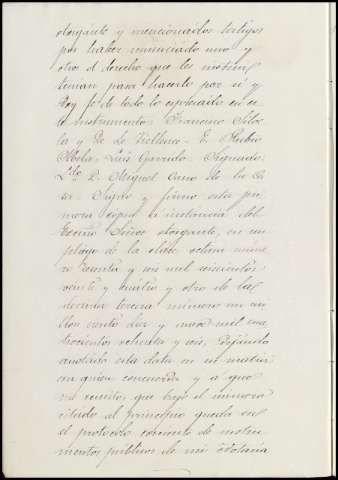 otorgante y mencionados testigos
por haber renunciado uno y
otro el derecho que les instruí
tenian para hacerlo por sí y
doy fe de todo lo espresado en es
te instrumento = Francisco Silve
la y de Le Vielleuze = E. Rubio
= Luis Garrido = Signado
Ldo D. Miguel Cano de la
= Signo y firmo esta pri
mera copia a instancia del
Excmo Señor otorgante, en un
pliego de la clase octava núme
ro sesenta y seis mil seiscientos
veinte y cuatro y otro de la
decima tercera número un mi
llon ciento diez y nueve mil cua
trocientos ochenta y seis, dejando
anotada esta data en su matriz
con quien concuerda y á que
me remito que bajo el número
citado al principio queda en
el protocolo corriente de instru
mentos públicos de mi Notaría